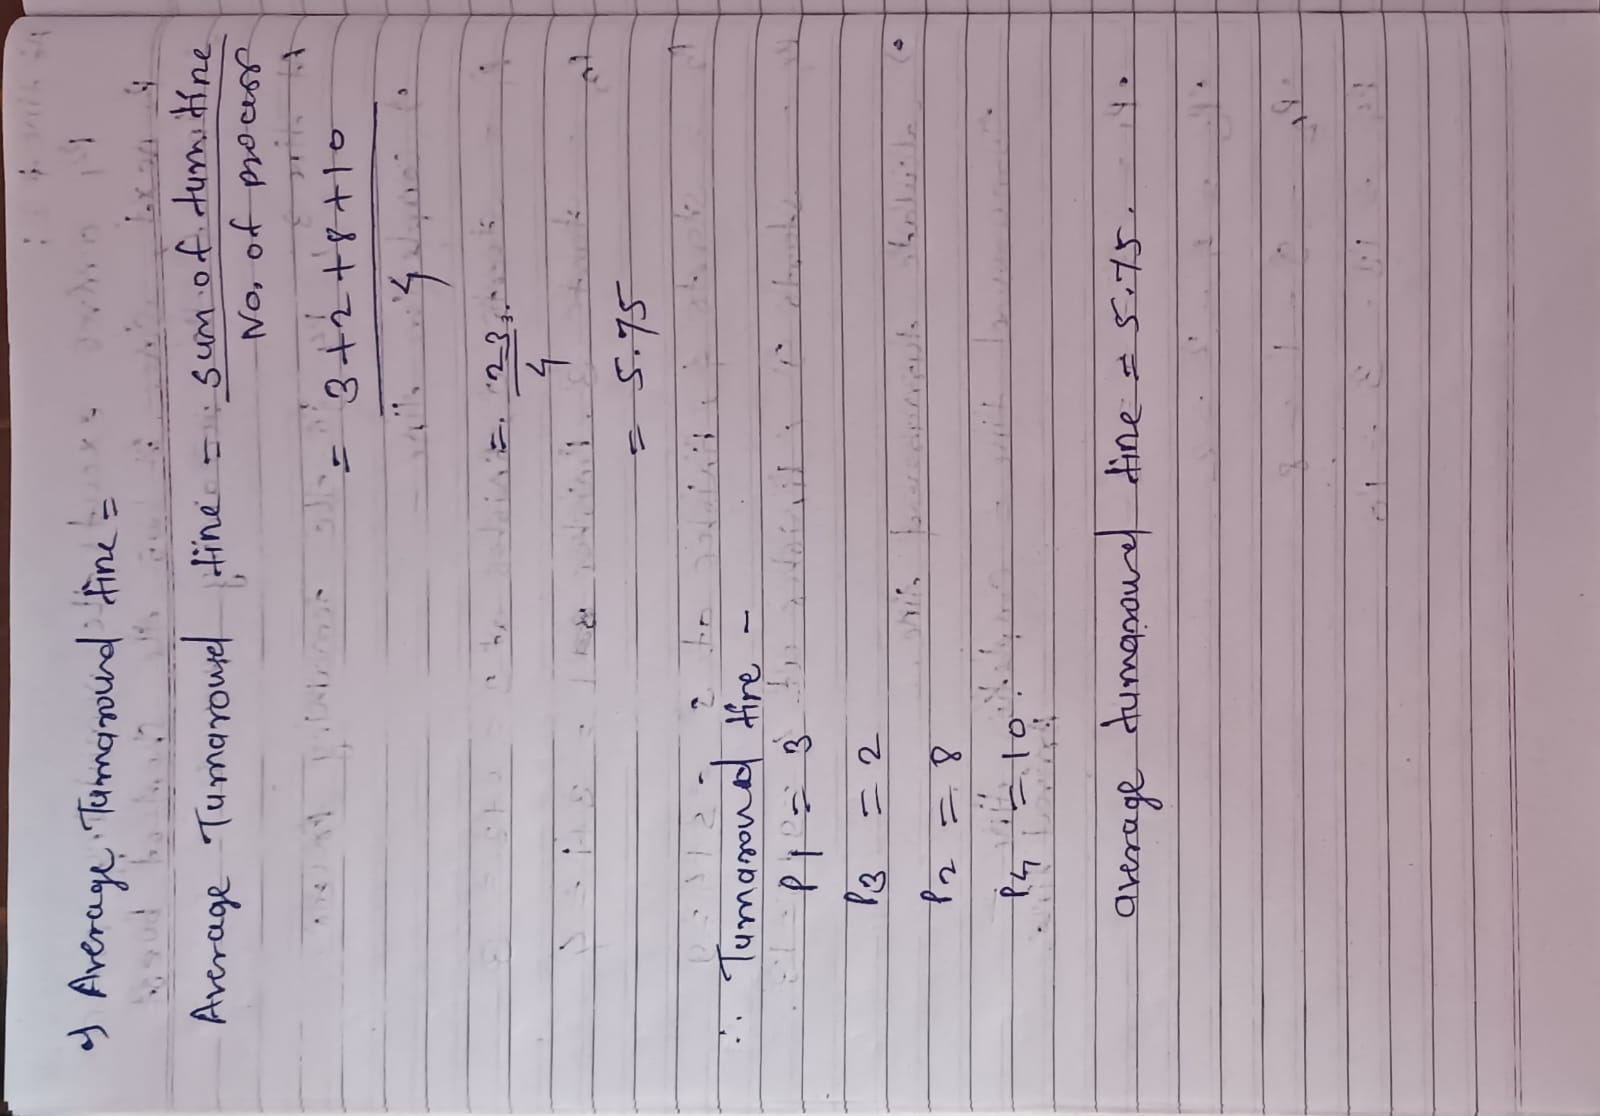 a) Average Turnaround time =
Average Turnaround time = Sum of turn time
No, of process
= 3+2+8+10
4
= 23
4
= 5.75
∴ Turnaround time -
P1 = 3
P3 = 2
P2 = 8
P4 = 10.
average turnaround time = 5.75.